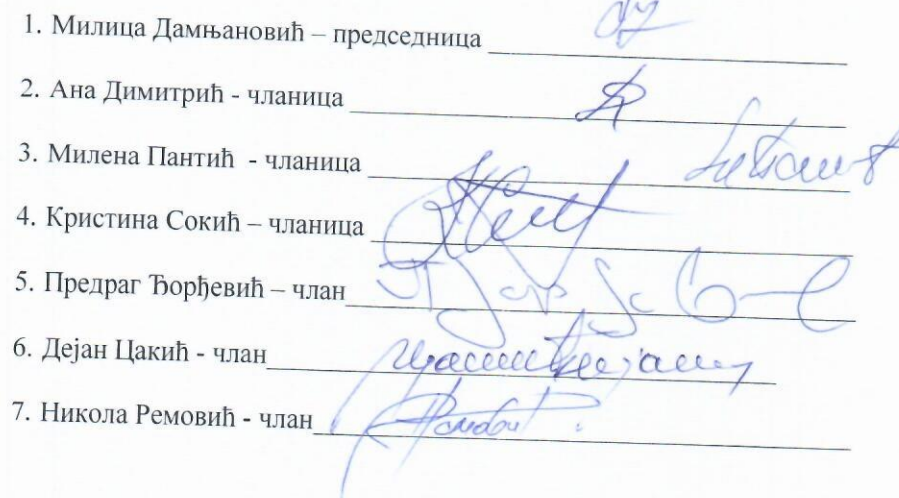 1. Милица Дамњановић – председница
2. Ана Димитрић - чланица
3. Милена Пантић - чланица
4. Кристина Сокић – чланица
5. Предраг Ђорђевић – члан
6. Дејан Цакић - члан
7. Никола Ремовић - члан